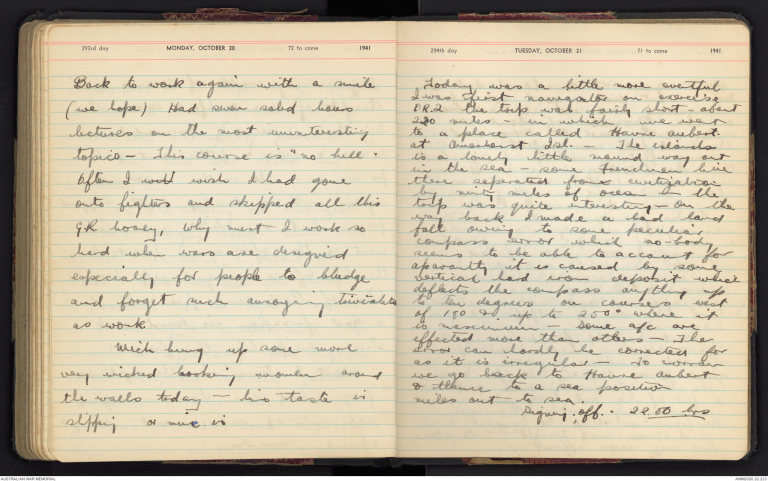 293rd day MONDAY, OCTOBER 20 72 to come 1941
Back to work again with a smile
(we hope) Had seven solid hours
lectures on the most uninteresting
topics – This course is "no hell".
Often I wish I had gone
onto fighters and skipped all this
G.R. hooey, why must I work so
hard when wars are designed
especially for people to bludge
and forget such annoying trivialities
as work
Mich hung up some more
very wicked looking women around
the walls today – his taste is
slipping or mine is
294th day TUESDAY, OCTOBER 21 71 to come 1941
Today was a little more eventful
I was first navigator on exercise
D.R.2 the trip was fairly short – about
220 miles – in which we went
to a place called Havre Aubert
at Amherst Isl. – The islands
is a lonely little mound way out
in the sea – some Frenchmen live
there seperated from civilization
by ninty miles of ocean – the
trip was quite interesting – on the
way back I made a bad land
fall owing to some peculiar
compass error which no-body
seems to be able to account for
aparantly it is caused by some
vertical hard iron deposit which
deflects the compass anything up
to ten degrees on courses west
of 180° & up to 250° where it
is maximum – some a/c are
effected more than others – The
error can hardly be corrected for
as it is irregular – To morrow
we go back to Havre Aubert
& thence to a sea position
miles out to sea.
Signing off. 22.00 hrs
AUSTRALIAN WAR MEMORIAL